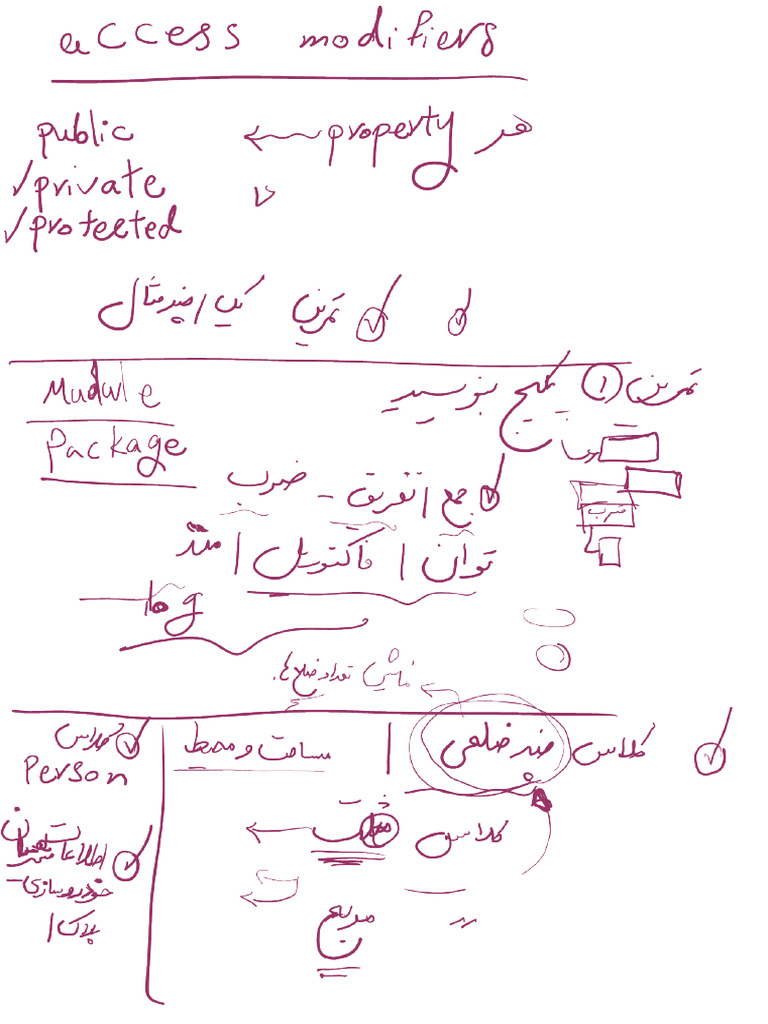 access modifiers
هر property ← public
✓ private
✓ protected
تمرین یک / چند مثال
تمرین ۱ پکیج بنویسید
Mudule
Package
جمع / تفریق - ضرب
ضرب
توان / فاکتوریل /
log
نمایش تعداد ضلع ها.
کلاس چند ضلعی | مساحت و محیط
کلاس مثلث ←
مربع
کلاس
Person
اطلاعات
خودروسازی
پلاک /